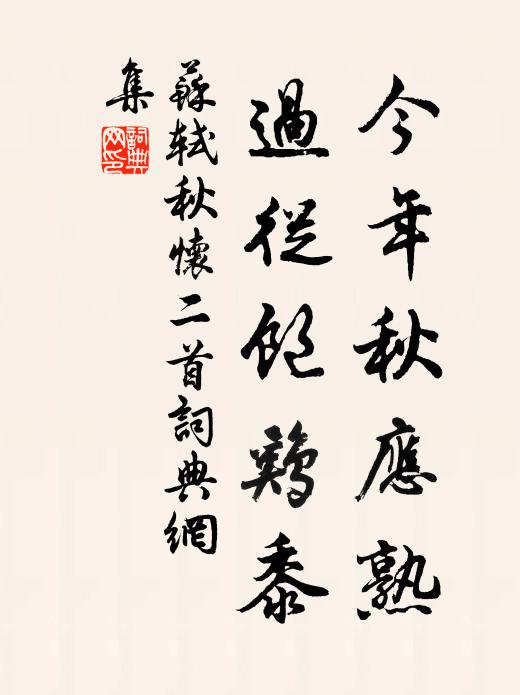 今年秋應熟
過從飽鷄黍
蘇軾秋懷二首詞典網
集
詞典
网印